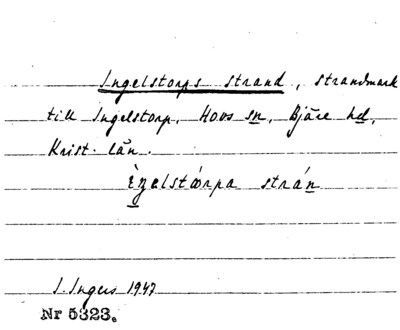 Ingelstorps strand, strandmark
till Ingelstorp, Hovs sn, Bjäre hd,
Krist. län.
ìŋelstǻrpa strán
I. Ingers 1947
Nr 5323.